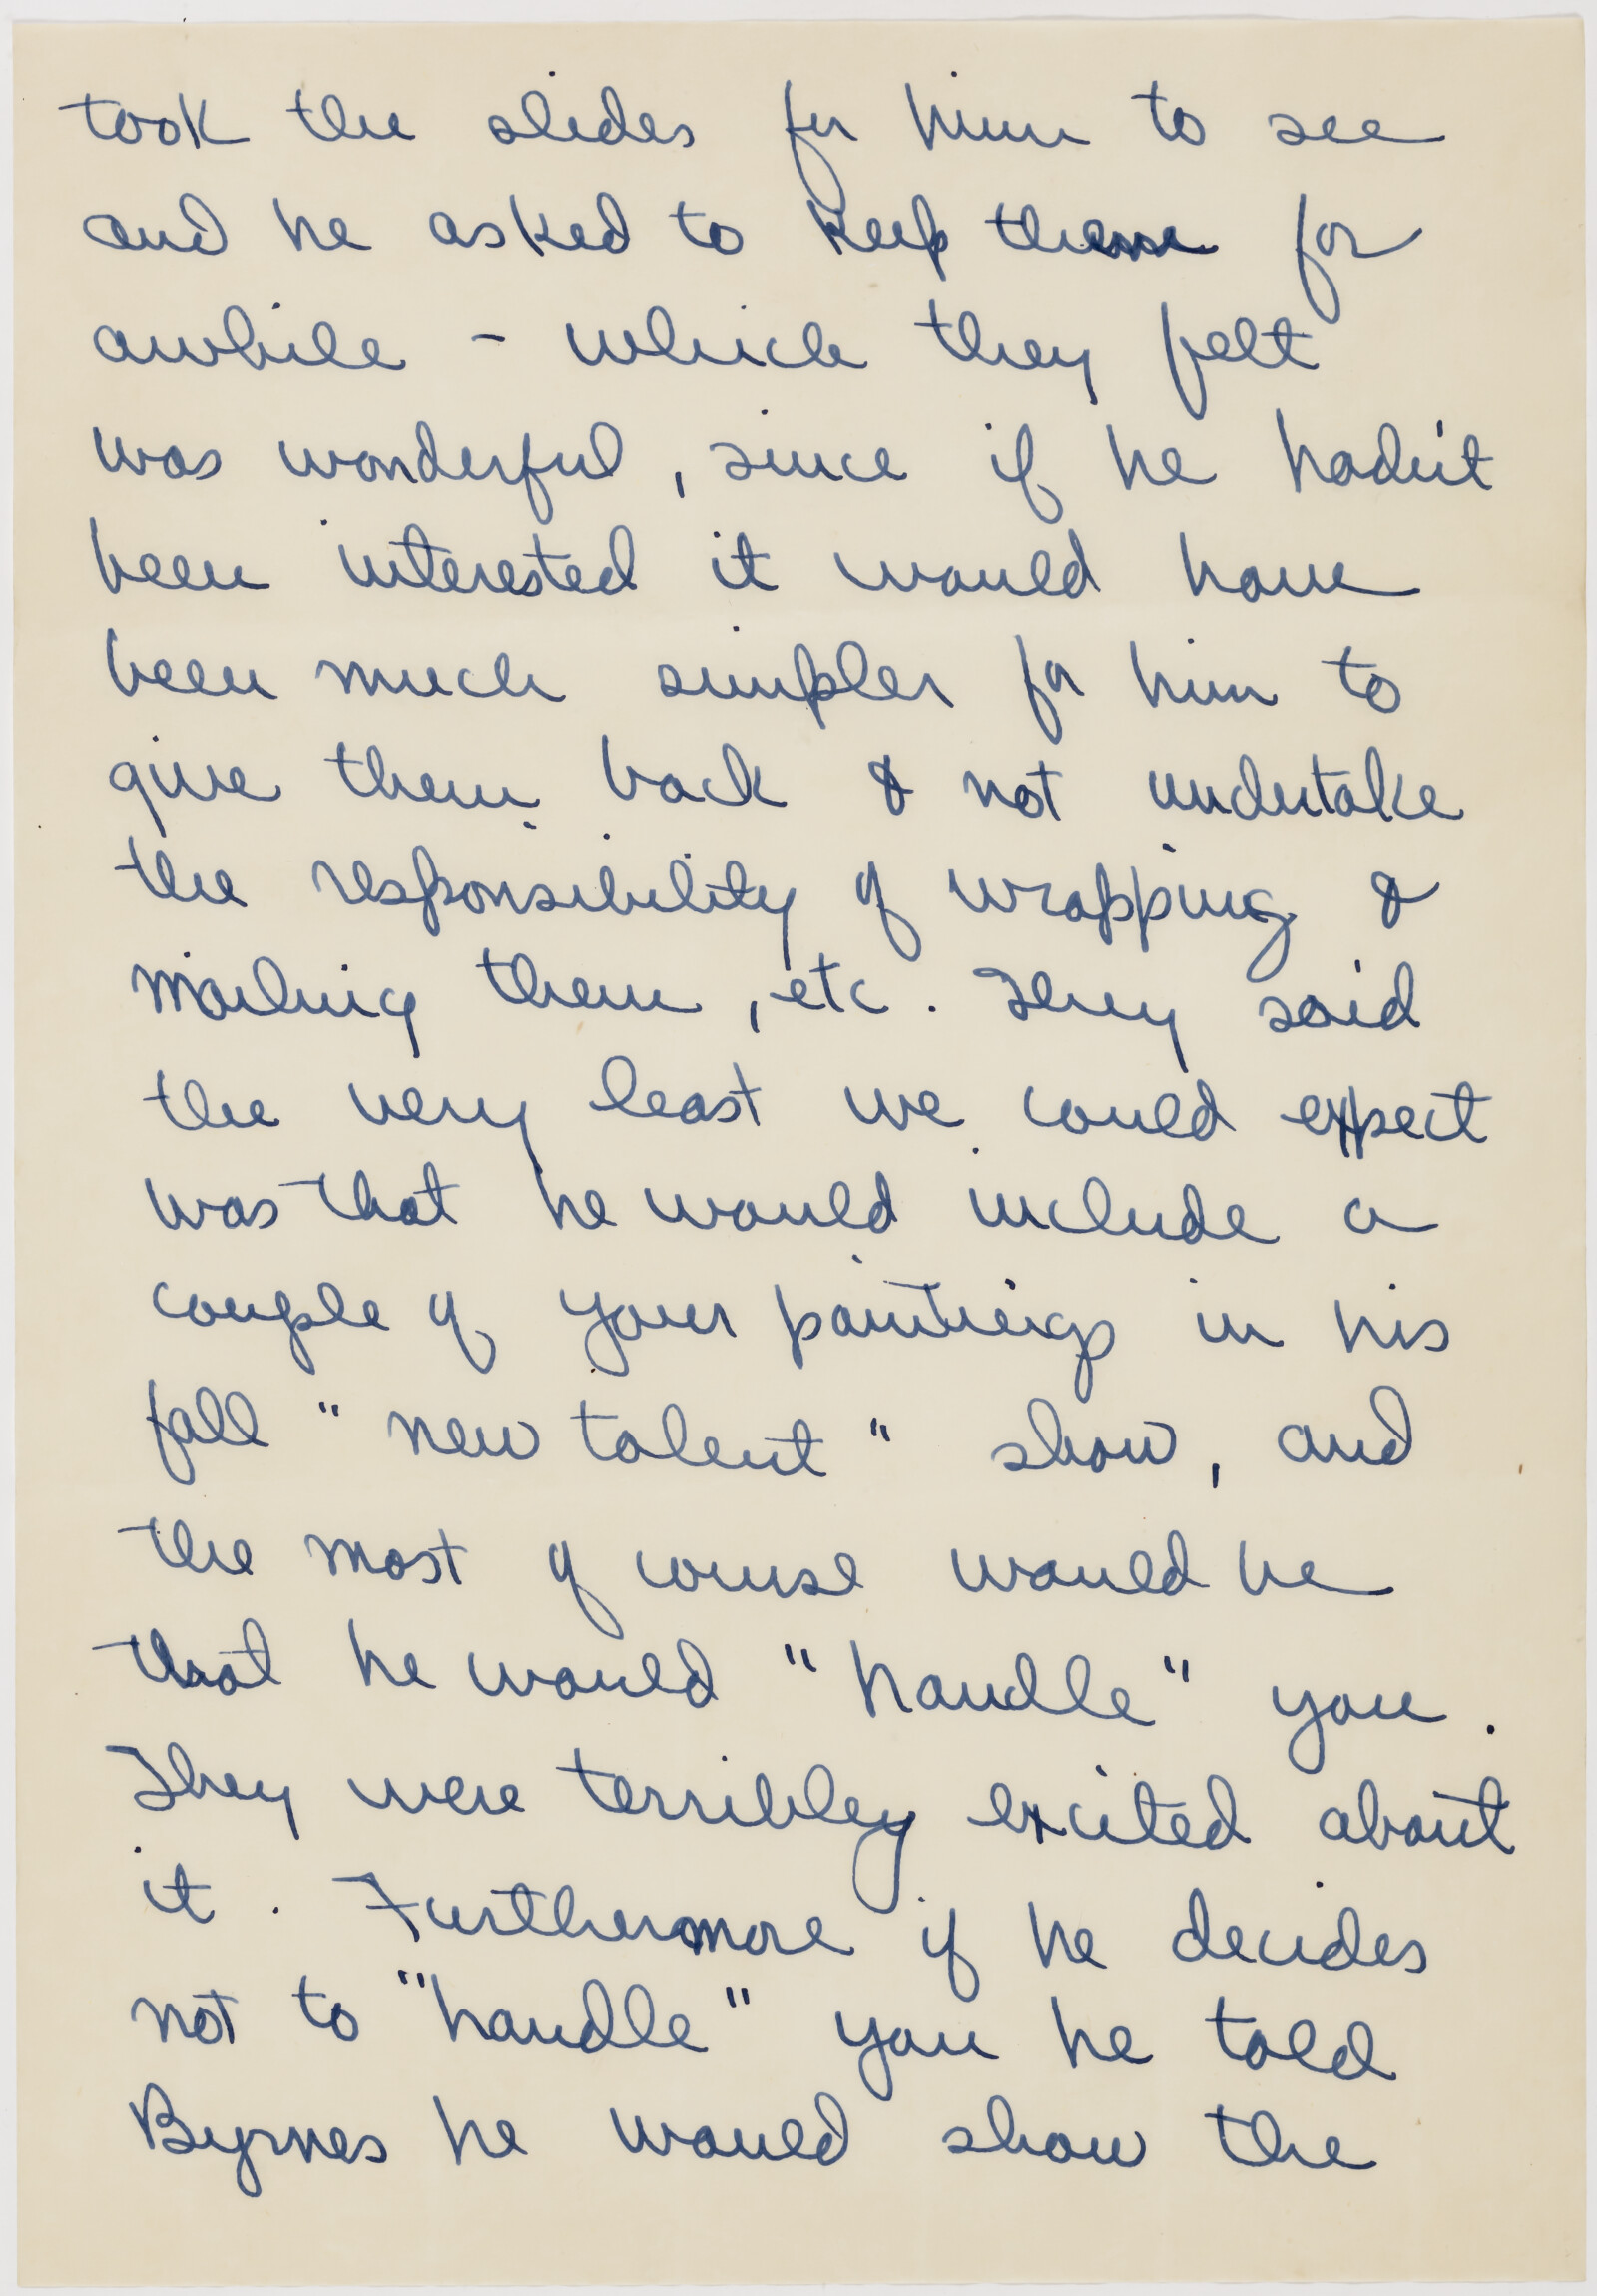 took the slides for him to see
and he asked to keep them for
awhile - which they felt
was wonderful, since if he hadn't
been interested it would have
been much simpler for him to
give them back & not undertake
the responsibility of wrapping &
mailing them, etc. They said
the very least we could expect
was that he would include a
couple of your paintings in his
fall "new talent" show, and
the most of course would be
that he would "handle" you.
They were terribley excited about
it. Furthermore if he decides
not to "handle" you he told
Byrnes he would show the